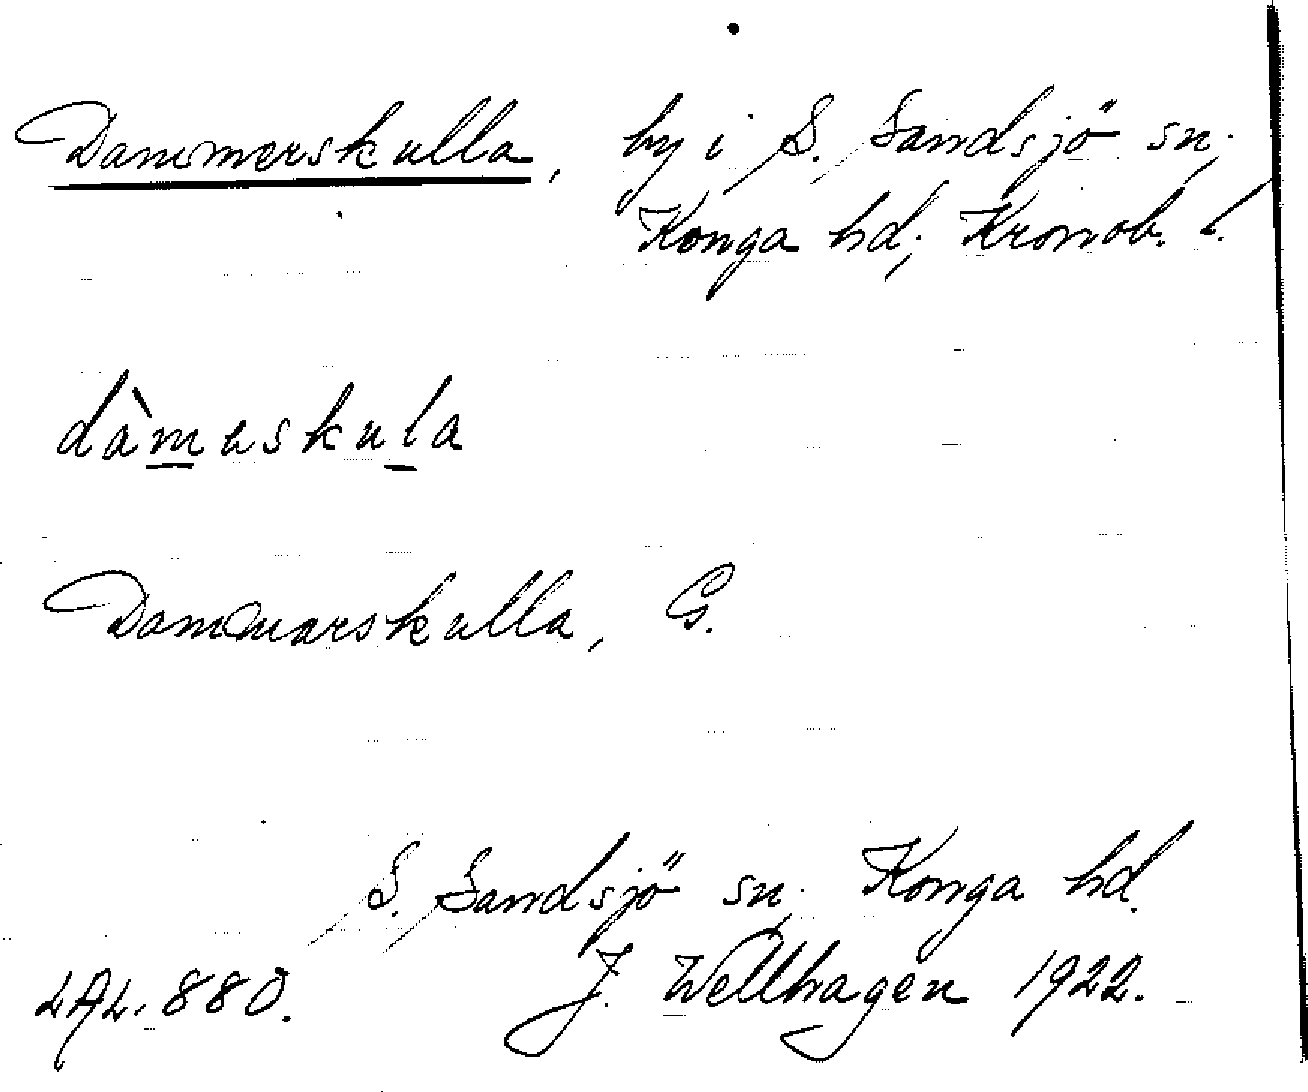 Dammerskulla, by i S. Sandsjö sn;
Konga hd; Kronob. l.
dàmuskula
Dammarskulla, G.
S. Sandsjö sn; Konga hd.
LAL. 880. J. Wellhagen 1922.